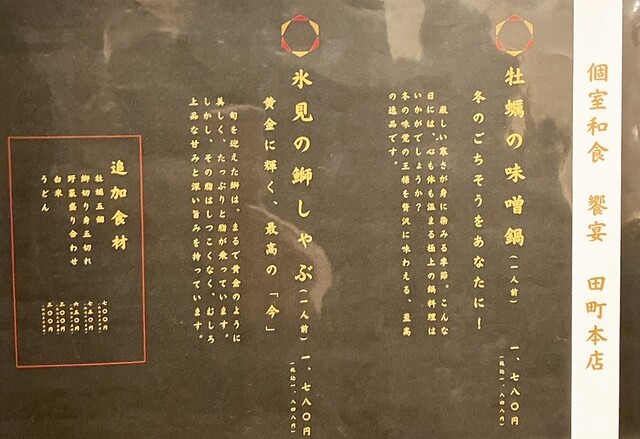 個室和食 饗宴 田町本店
牡蠣の味噌鍋(一人前) 一、七八〇円
冬のごちそうをあなたに!
厳しい寒さが身に染みる季節。こんな
日には、心も体も温まる極上の鍋料理は
いかがでしょうか?
冬の味覚の王様を贅沢に味わえる、至高
の逸品です。
氷見の鰤しゃぶ(一人前) 一、七八〇円
(税込一、八四八円)
黄金に輝く、最高の「今」
旬を迎えた鰤は、まるで黄金のように
美しく、たっぷりと脂が乗っています。
しかし、その脂はしつこくなく、むしろ
上品な甘みと深い旨みを持っています。
追加食材
牡蠣五個 七〇〇円
鰤切り身五切れ 七五〇円
野菜盛り合わせ 六五〇円
白米 三〇〇円
うどん 三〇〇円